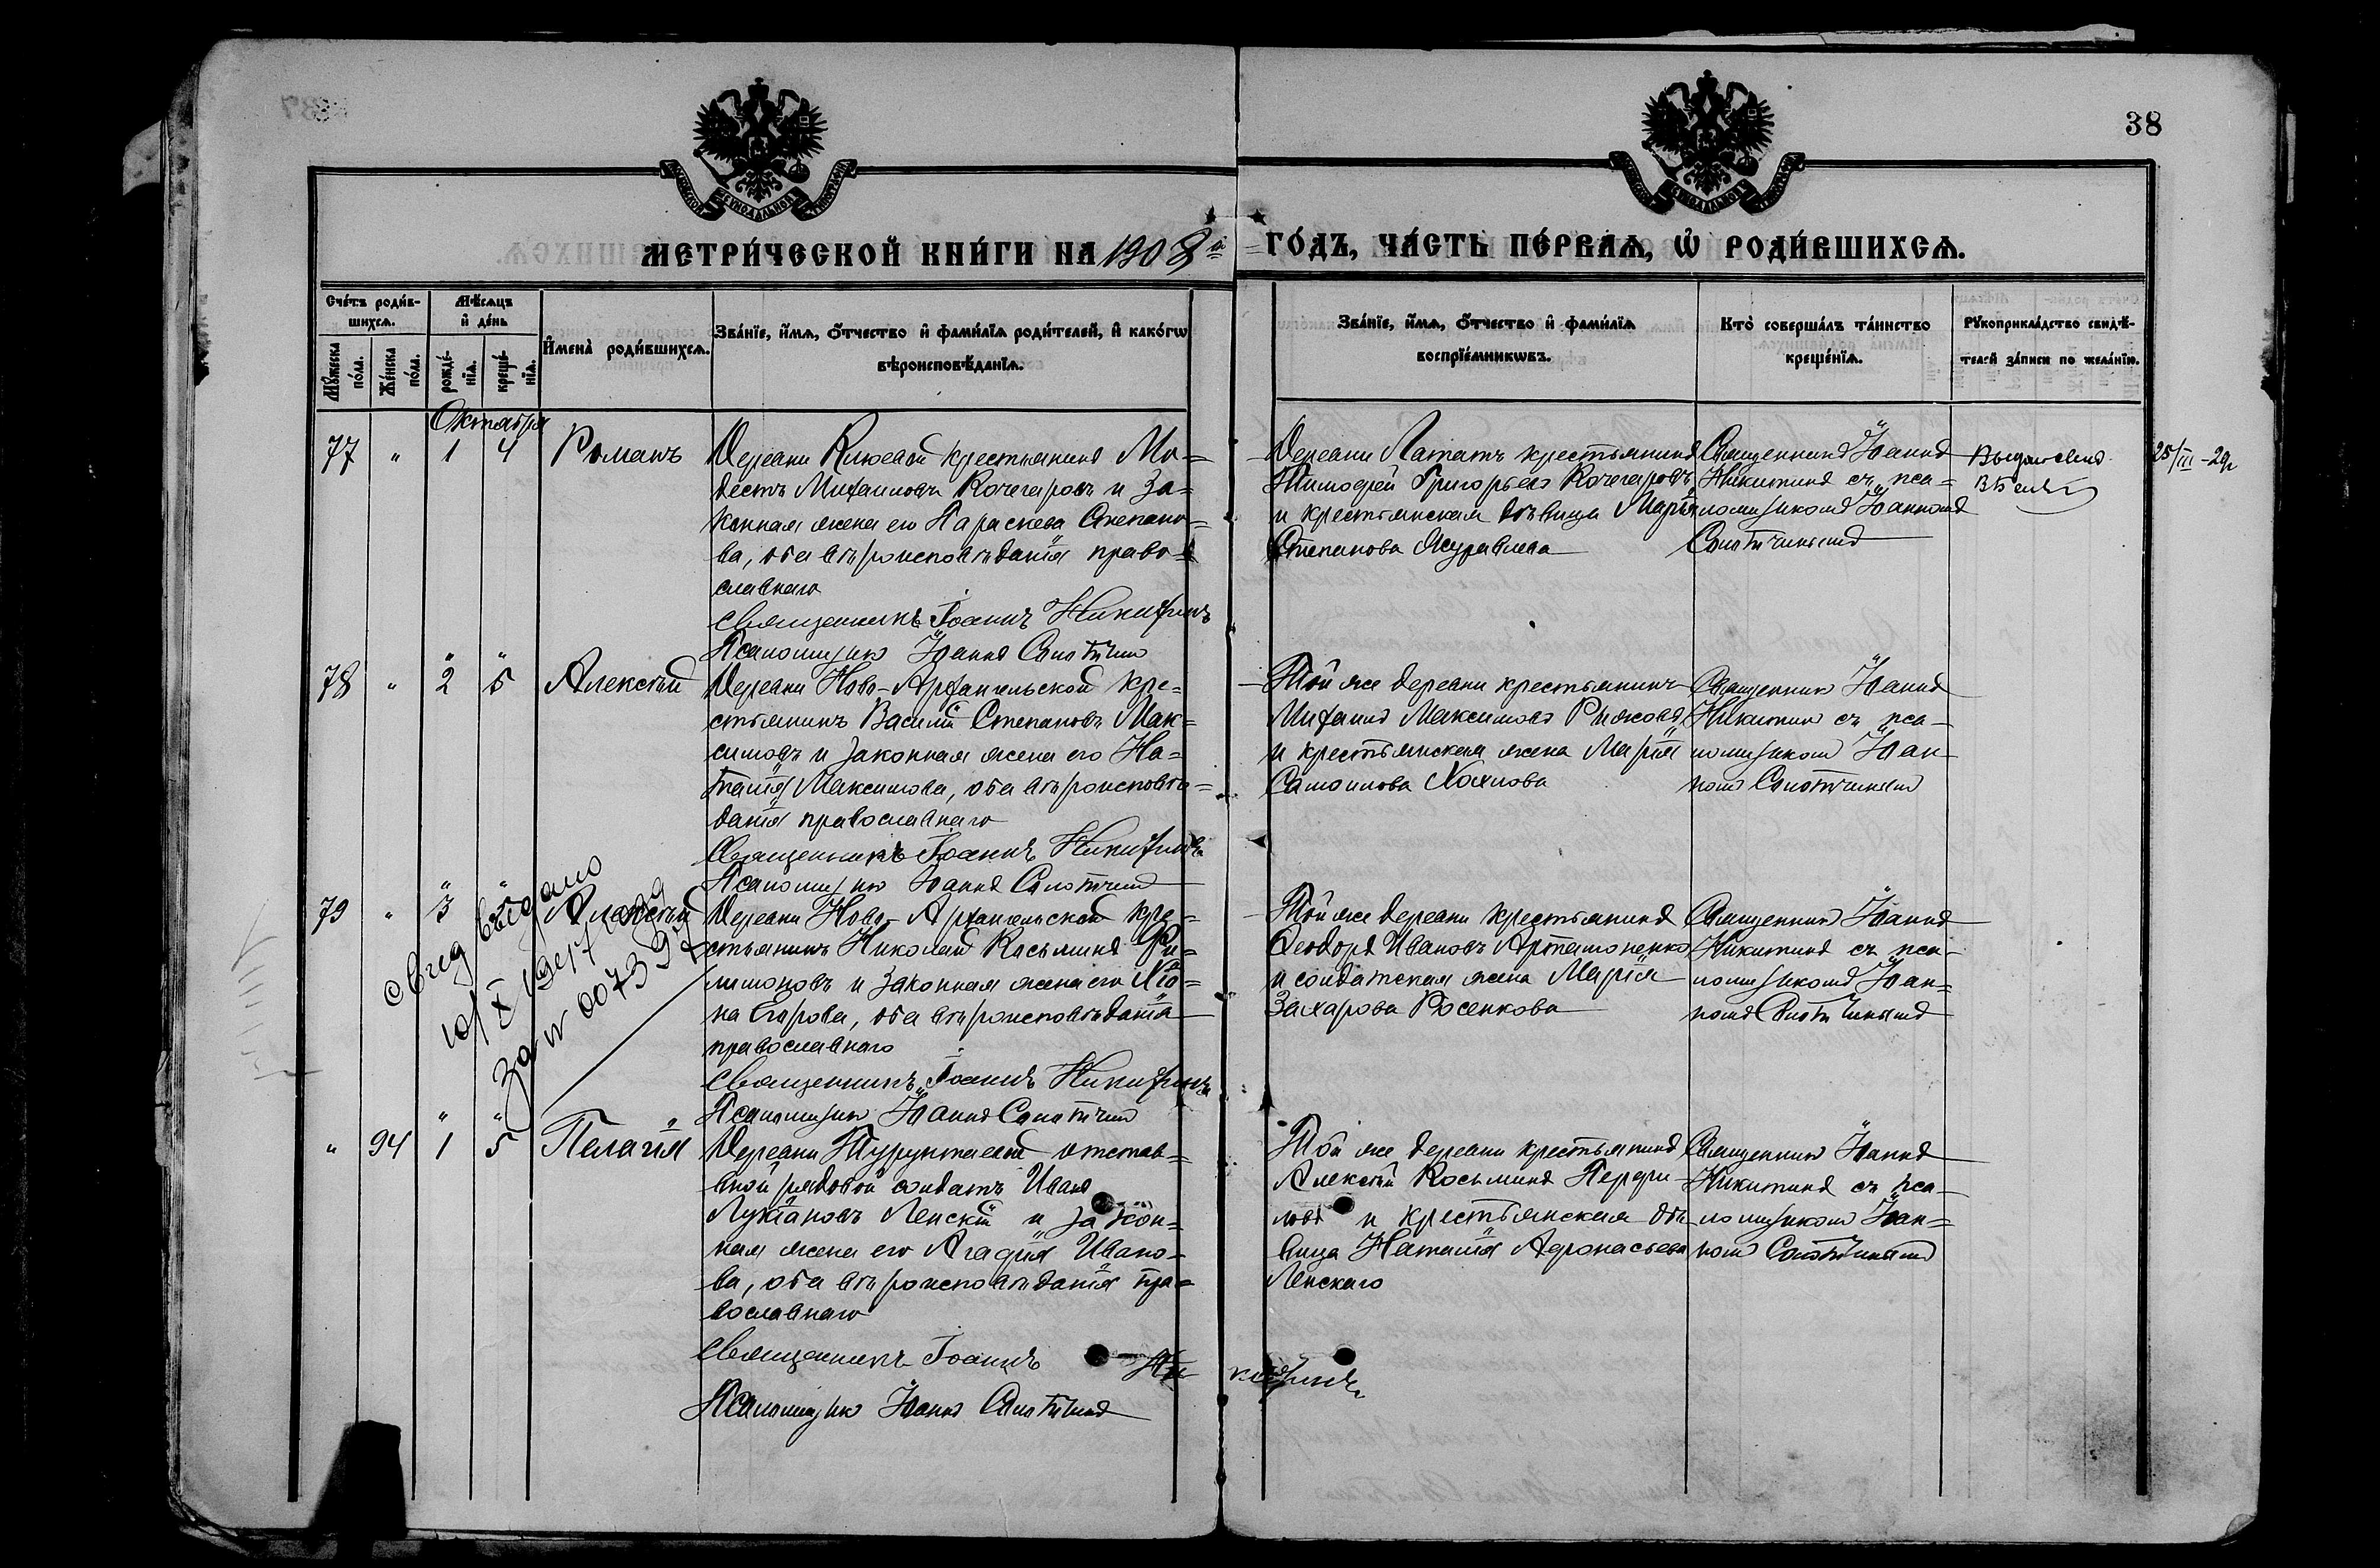 38
МЕТРИ́ЧЕСКОЙ КНИ́ГИ НА 1908 й
ГО́ДЪ, ЧА́СТЬ ПЕ́РВАѦ, Ѡ҆ РОДИ́ВШИХСѦ.
Сче́тъ роди́в-
шихсѧ.
Мѣ́сѧцъ
и҆ де́нь
Мꙋ́жеска
по́ла.
Же́нска
по́ла.
рожде́-
нїѧ.
креще́-
нїѧ.
И҆мена̀ роди́вшихсѧ.
Зва́нїе, и҆́мѧ, ѻ҆́тчество и҆ фами́лїѧ роди́телей, и҆ како́гѡ
вѣроисповѣ́данїѧ.
Зва́нїе, и҆́мѧ, ѻ҆́тчество и҆ фами́лїѧ
воспрїе́мникѡвъ.
Кто̀ соверша́лъ та́инство
креще́нїѧ.
Рꙋкоприкла́дство свидѣ́-
телей за́писи по жела́нїю.
Октября
77 " 1 4 Романъ
Деревни Клюевой крестьянинъ Мо=
дестъ Михаиловъ Кочегаровъ и за=
конная жена его Параскева Степано=
ва, оба вѣроисповѣданія право=
славнаго
Священникъ Іоаннъ Никитинъ
Псаломщикъ Іоаннъ
Деревни Лататъ крестьянинъ
Тимофей Григорьевъ Кочегаровъ
и крестьянская дѣвица Марія
Степанова Журавлева
Священникъ Іоаннъ
Никитинъ съ пса=
ломщикомъ Іоанномъ
25/III-29г
78 " 2 5 Алексѣй
Деревни Ново-Архангельской кре=
стьянинъ Василій Степановъ Мак=
симовъ и законная жена его На=
талія Максимова, оба вѣроисповѣ=
данія православнаго
Священникъ Іоаннъ Никитинъ
Псаломщикъ Іоаннъ
Той же деревни крестьянинъ
Михаилъ Максимовъ Рыжовъ
и крестьянская жена Марія
Самоилова
Священникъ Іоаннъ
Никитинъ съ пса=
ломщикомъ Іоан=
номъ
79 " 3 Алексѣй
свид выдано
10/X 1947 года
за № 007397
Деревни Ново-Архангельской кре=
стьянинъ Николай Косьминъ Фи=
лимоновъ и законная жена его
на Егорова, оба вѣроисповѣданія
православнаго
Священникъ Іоаннъ Никитинъ
Псаломщикъ Іоаннъ
Той же деревни крестьянинъ
Ѳеодоръ Ивановъ Артамоненко
и солдатская жена Марія
Захарова Росенкова
Священникъ Іоаннъ
Никитинъ съ пса=
ломщикомъ Іоан=
номъ
" 94 1 5 Пелагія
Деревни Турунтаевой отстав=
ной рядовой солдатъ Иванъ
Лукіановъ Ленскій и закон=
ная жена его Агафія Ивано=
ва, оба вѣроисповѣданія пра=
вославнаго
Священникъ Іоаннъ Никитинъ
Псаломщикъ Іоаннъ
Той же деревни крестьянинъ
Алексѣй Косьминъ Перфи=
ловъ и крестьянская дѣ=
вица Наталія Афонасьева
Ленскаго
Священникъ Іоаннъ
Никитинъ съ пса=
ломщикомъ Іоан=
номъ